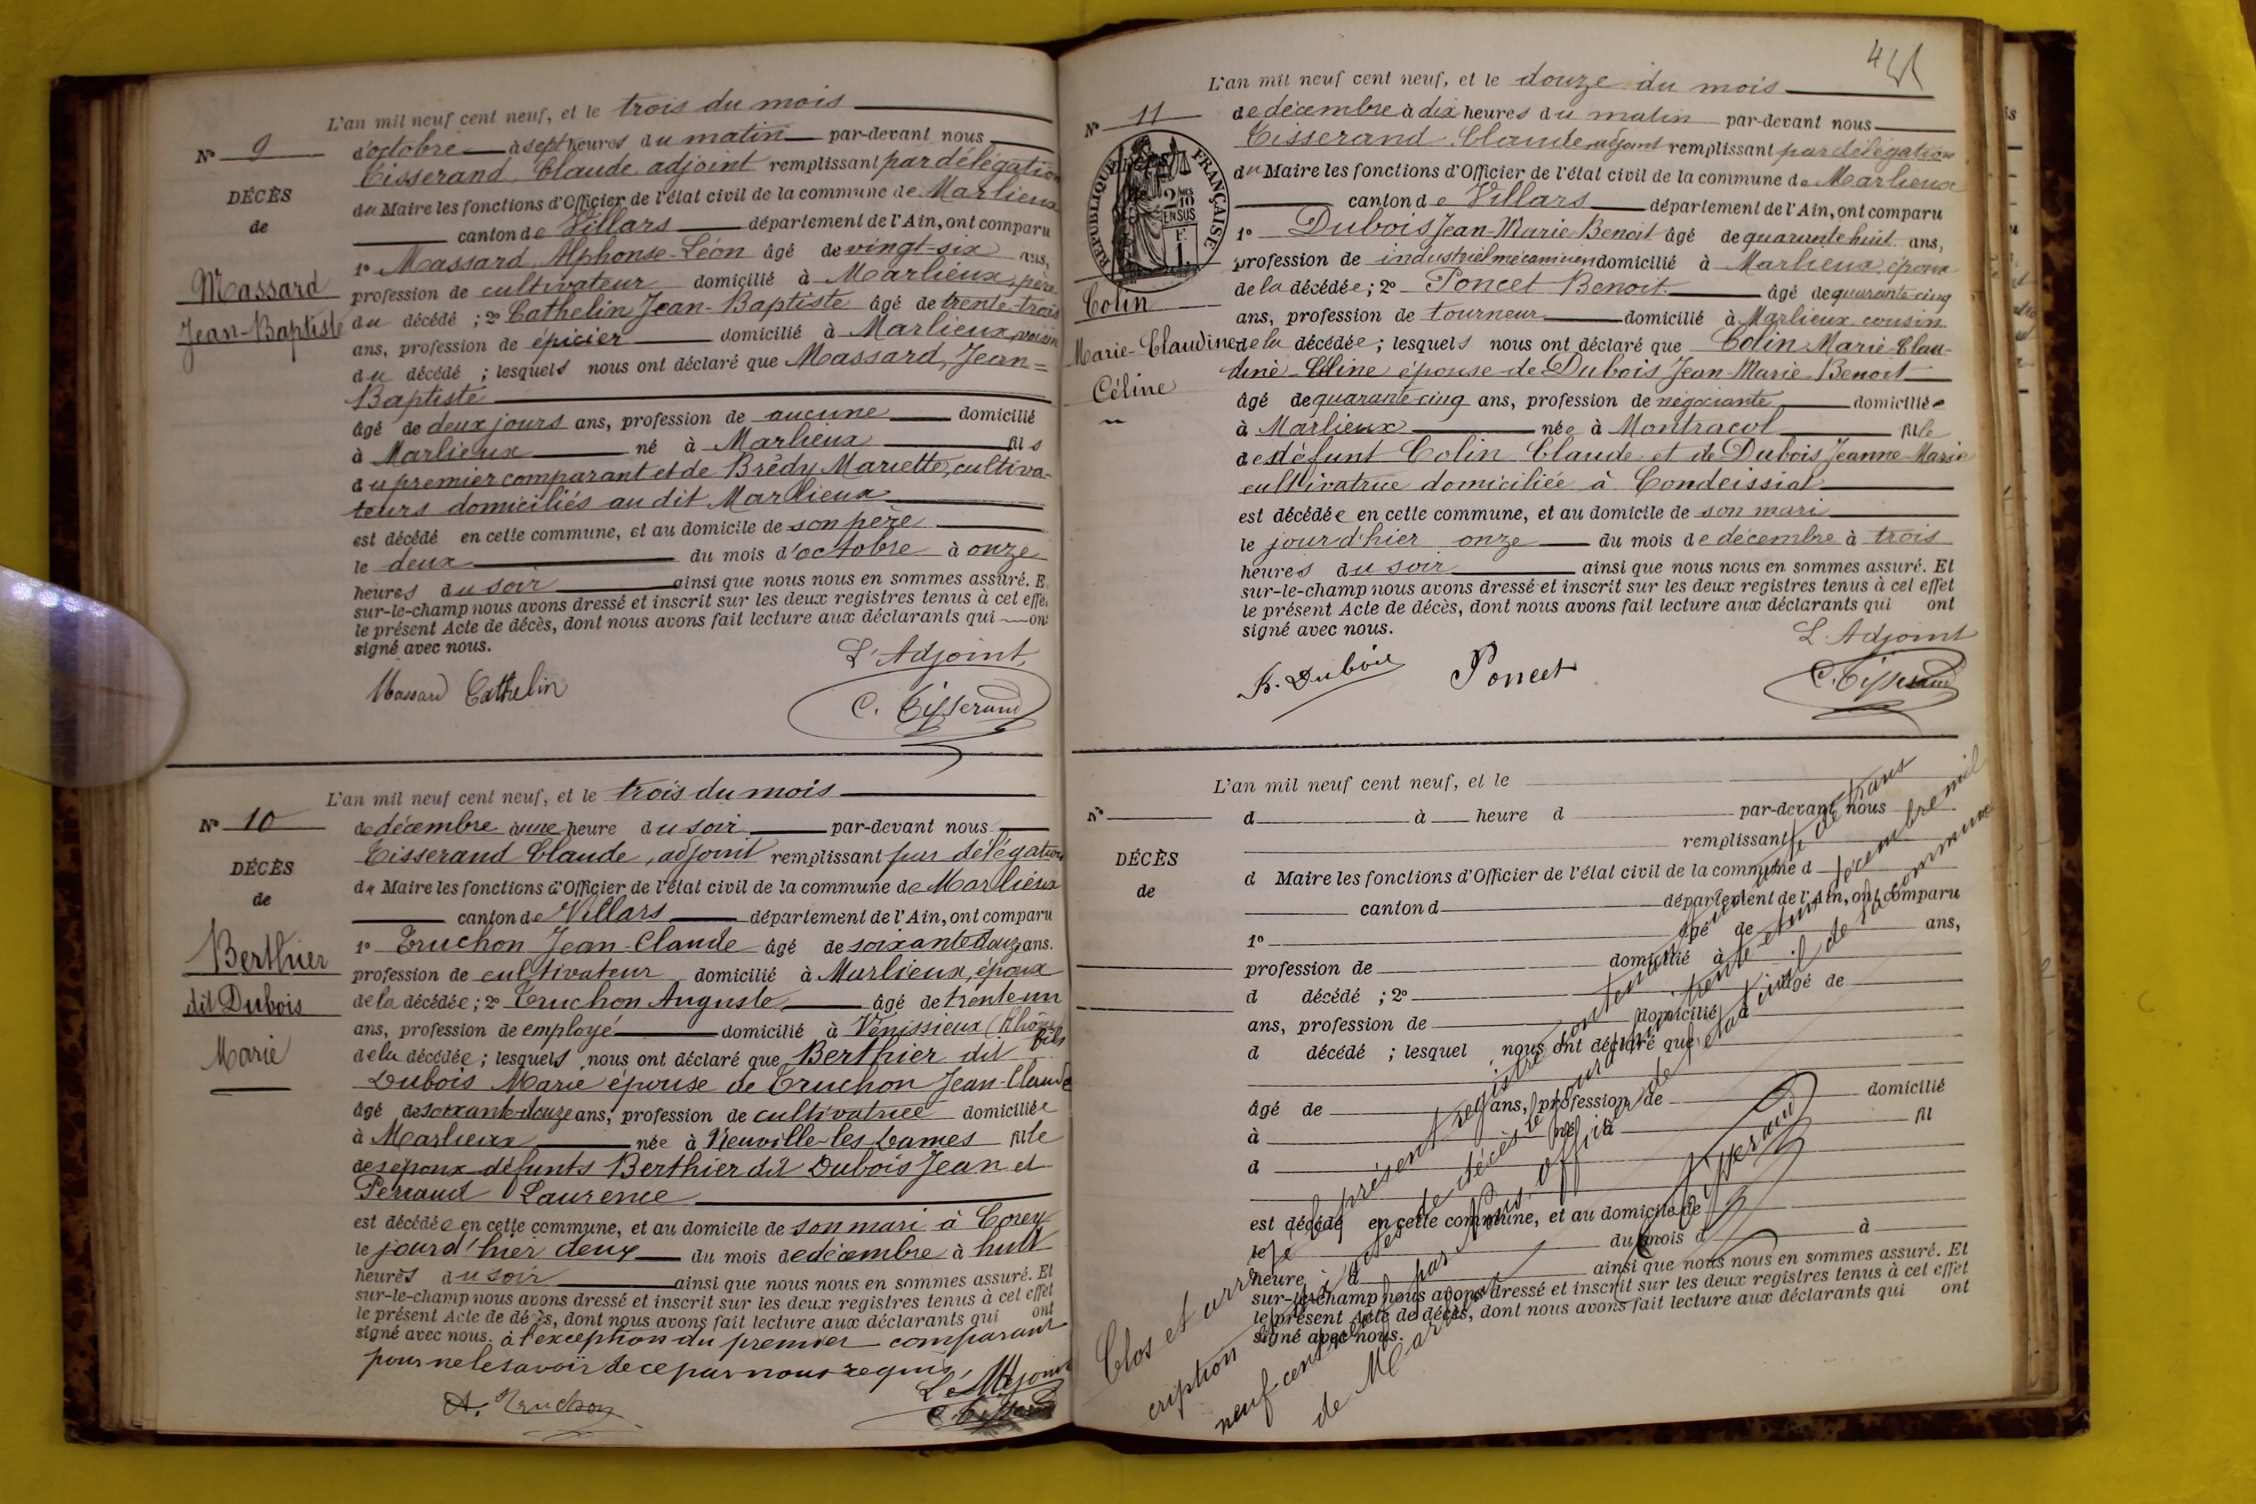 L'an mil neuf cent neuf, et le trois du mois
N° 9
d'octobre à sept heures du matin par-devant nous
Tisserand Claude adjoint remplissant par délégation
DÉCÈS
de
du Maire les fonctions d'Officier de l'état civil de la commune de Marlieux
canton de Villars département de l'Ain, ont comparu
1° Massard Alphonse-Léon âgé de vingt-six ans,
Massard
Jean-Baptiste
profession de cultivateur domicilié à Marlieux, père
du décédé ; 2° Cathelin Jean-Baptiste âgé de trente-trois
ans, profession de épicier domicilié à Marlieux, voisin
du décédé ; lesquels nous ont déclaré que Massard, Jean=
Baptiste
âgé de deux jours ans, profession de aucune domicilié
à Marlieux né à Marlieux fils
du premier comparant et de Brédy Mariette, cultiva-
teurs domiciliés au dit Marlieux
est décédé en cette commune, et au domicile de son père
le deux du mois d'octobre à onze
heures du soir ainsi que nous nous en sommes assuré. E
sur-le-champ nous avons dressé et inscrit sur les deux registres tenus à cet effe
le présent Acte de décès, dont nous avons fait lecture aux déclarants qui on
signé avec nous.
L'Adjoint
Massard Cathelin
C. Tisserand
L'an mil neuf cent neuf, et le trois du mois
N° 10
de décembre à une heure du soir par-devant nous
Tisserand Claude, adjoint remplissant par délégation
DÉCÈS
de
du Maire les fonctions d'Officier de l'état civil de la commune de Marlieux
canton de Villars département de l'Ain, ont comparu
1° Truchon Jean-Claude âgé de soixante douze ans.
Berthier
dit Dubois
Marie
profession de cultivateur domicilié à Marlieux, époux
de la décédée ; 2° Truchon Auguste âgé de trente-un
ans, profession de employé domicilié à Vénissieux (Rhône) fils
de la décédée ; lesquels nous ont déclaré que Berthier dit
Dubois Marie épouse de Truchon Jean-Claude
âgé de soixante-douze ans, profession de cultivatrice domiciliée
à Marlieux née à Neuville-les-Dames fille
des époux défunts Berthier dit Dubois Jean et
Perraud Laurence
est décédée en cette commune, et au domicile de son mari à Corey
le jourd'hier deux du mois de décembre à huit
heures du soir ainsi que nous nous en sommes assuré. Et
sur-le-champ nous avons dressé et inscrit sur les deux registres tenus à cet effet
le présent Acte de décès, dont nous avons fait lecture aux déclarants qui ont
signé avec nous. à l'exception du premier comparant
pour ne le savoir de ce par nous requis
L'Adjoint
A. Truchon
C. Tisserand
L'an mil neuf cent neuf, et le douze du mois
N° 11
de décembre à dix heures du matin par-devant nous
Tisserand Claude adjoint remplissant par délégation
RÉPUBLIQUE FRANÇAISE
2 10 MES
EN SUS
du Maire les fonctions d'Officier de l'état civil de la commune de Marlieux
canton de Villars département de l'Ain, ont comparu
1° Dubois Jean-Marie Benoit âgé de quarante huit ans,
profession de industriel mécanicien domicilié à Marlieux, époux
de la décédée ; 2° Poncet Benoit âgé de quarante-cinq
Colin
Marie-Claudine
Céline
ans, profession de tourneur domicilié à Marlieux cousin
de la décédée ; lesquels nous ont déclaré que Colin Marie Clau-
dine Céline épouse de Dubois Jean-Marie Benoit
âgé de quarante cinq ans, profession de négociante domiciliée
à Marlieux née à Montracol fille
de défunt Colin Claude et de Dubois Jeanne-Marie
cultivatrice domiciliée à Condeissiat
est décédée en cette commune, et au domicile de son mari
le jourd'hier onze du mois de décembre à trois
heures du soir ainsi que nous nous en sommes assuré. Et
sur-le-champ nous avons dressé et inscrit sur les deux registres tenus à cet effet
le présent Acte de décès, dont nous avons fait lecture aux déclarants qui ont
signé avec nous.
L'Adjoint
B. Dubois Poncet
C. Tisserand
L'an mil neuf cent neuf, et le
N°
d à heure d par-devant nous
remplissant
DÉCÈS
de
d Maire les fonctions d'Officier de l'état civil de la commune d
canton d département de l'Ain, ont comparu
1° âgé de ans,
profession de domicilié à
d décédé ; 2° âgé de
ans, profession de domicilié à
d décédé ; lesquel nous ont déclaré que
âgé de ans, profession de domicilié
à né à fil
d
est décédé en cette commune, et au domicile de
le du mois d à
heure d ainsi que nous nous en sommes assuré. Et
sur-le-champ nous avons dressé et inscrit sur les deux registres tenus à cet effet
le présent Acte de décès, dont nous avons fait lecture aux déclarants qui ont
signé avec nous.
Clos et arrêté le présent registre contenant la trans
cription de actes de décès le jourd'hui trente et un décembre mil
neuf cent neuf par Nous Officier de l'état civil de la commune
de Marlieux
C. Tisserand